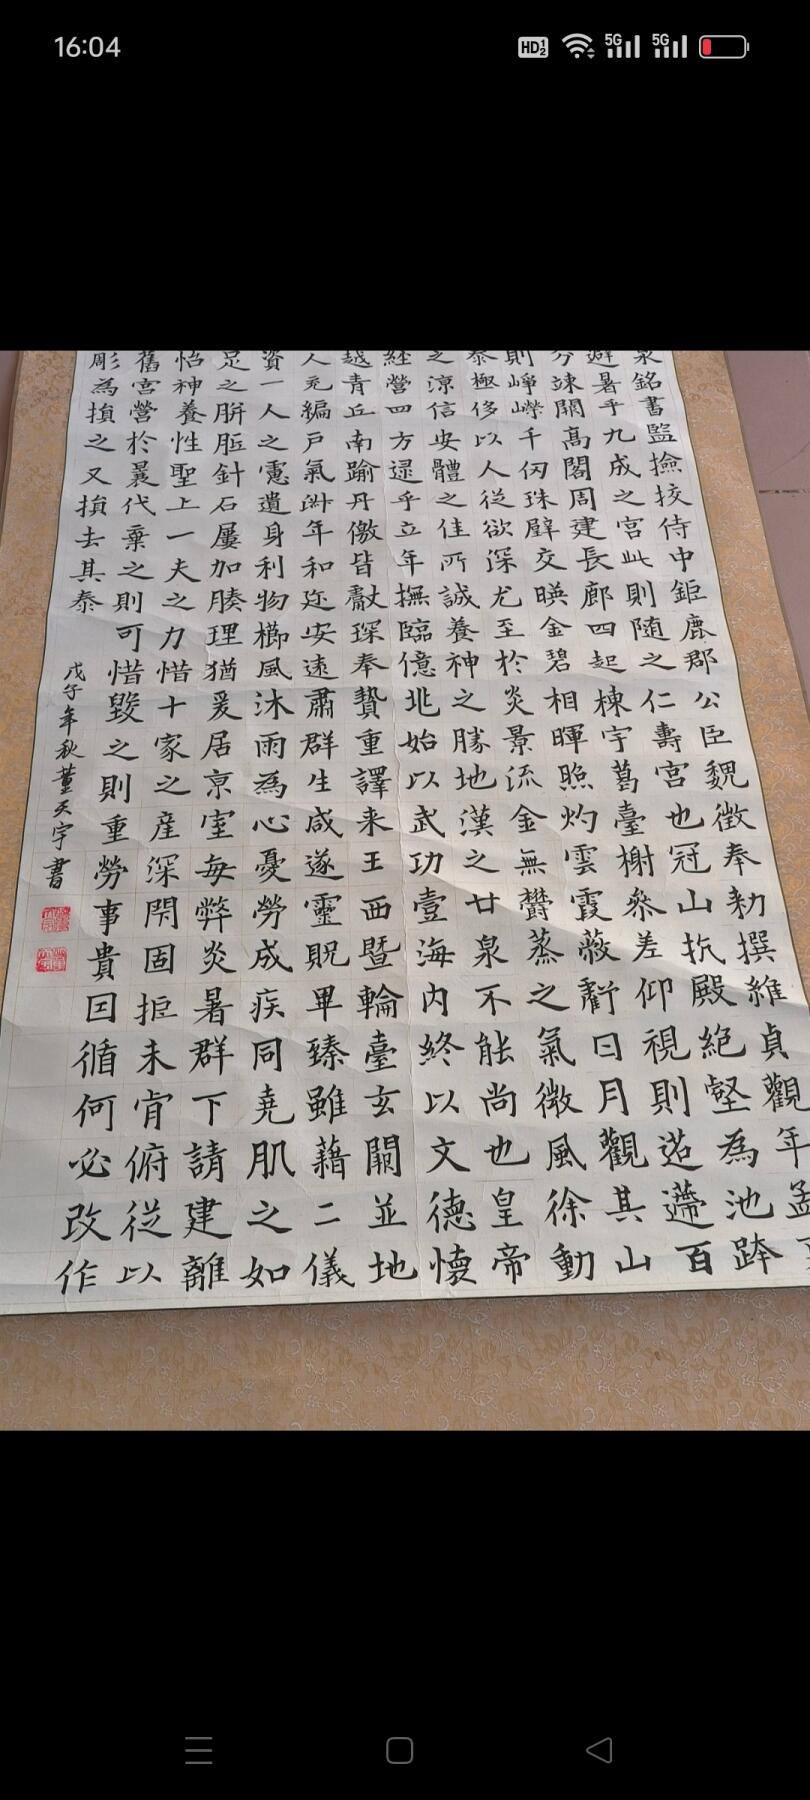 16:04
HD 1 2
5G
5G
泉銘書監撿挍侍中鉅鹿郡公臣魏徵奉勑撰維貞觀年孟
避暑乎九成之宮此則随之仁壽宮也冠山抗殿絶壑為池跨
分竦闕高閣周建長廊四起棟宇葛臺榭叅差仰視則迢遰百
則崢嶸千仞珠壁交暎金碧相暉照灼雲霞蔽虧日月觀其山
泰極侈以人從欲深尤至於炎景流金無欝蒸之氣微風徐動
之涼信安體之佳所誠養神之勝地漢之甘泉不能尚也皇帝
経營四方逯乎立年撫臨億兆始以武功壹海内終以文德懷
越青丘南踰丹儌皆獻琛奉贄重譯来王西暨輪臺玄闕並地
人充編戸氣淑年和迩安逺肅群生咸遂靈貺畢臻雖藉二儀
資一人之慮遺身利物櫛風沐雨為心憂勞成疾同堯肌之如
足之胼胝針石屢加腠理猶爰居京室每弊炎暑群下請建離
怡神養性聖上一夫之力惜十家之産深閇固拒未肎俯從以
舊宮營於曩代棄之則可惜毀之則重勞事貴囙循何必改作
彫為損之又損去其泰
戊子年秋董天宇書